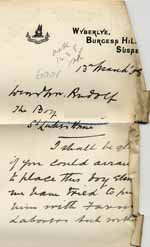 WYBERLYE,
BURGESS HIL
SUSSE
6001
13 March 9
Dear Mr. Rudolf
The Boy
I shall be gl
if you could arran
to place this boy
We have tried to
him with Farm
Labourer but